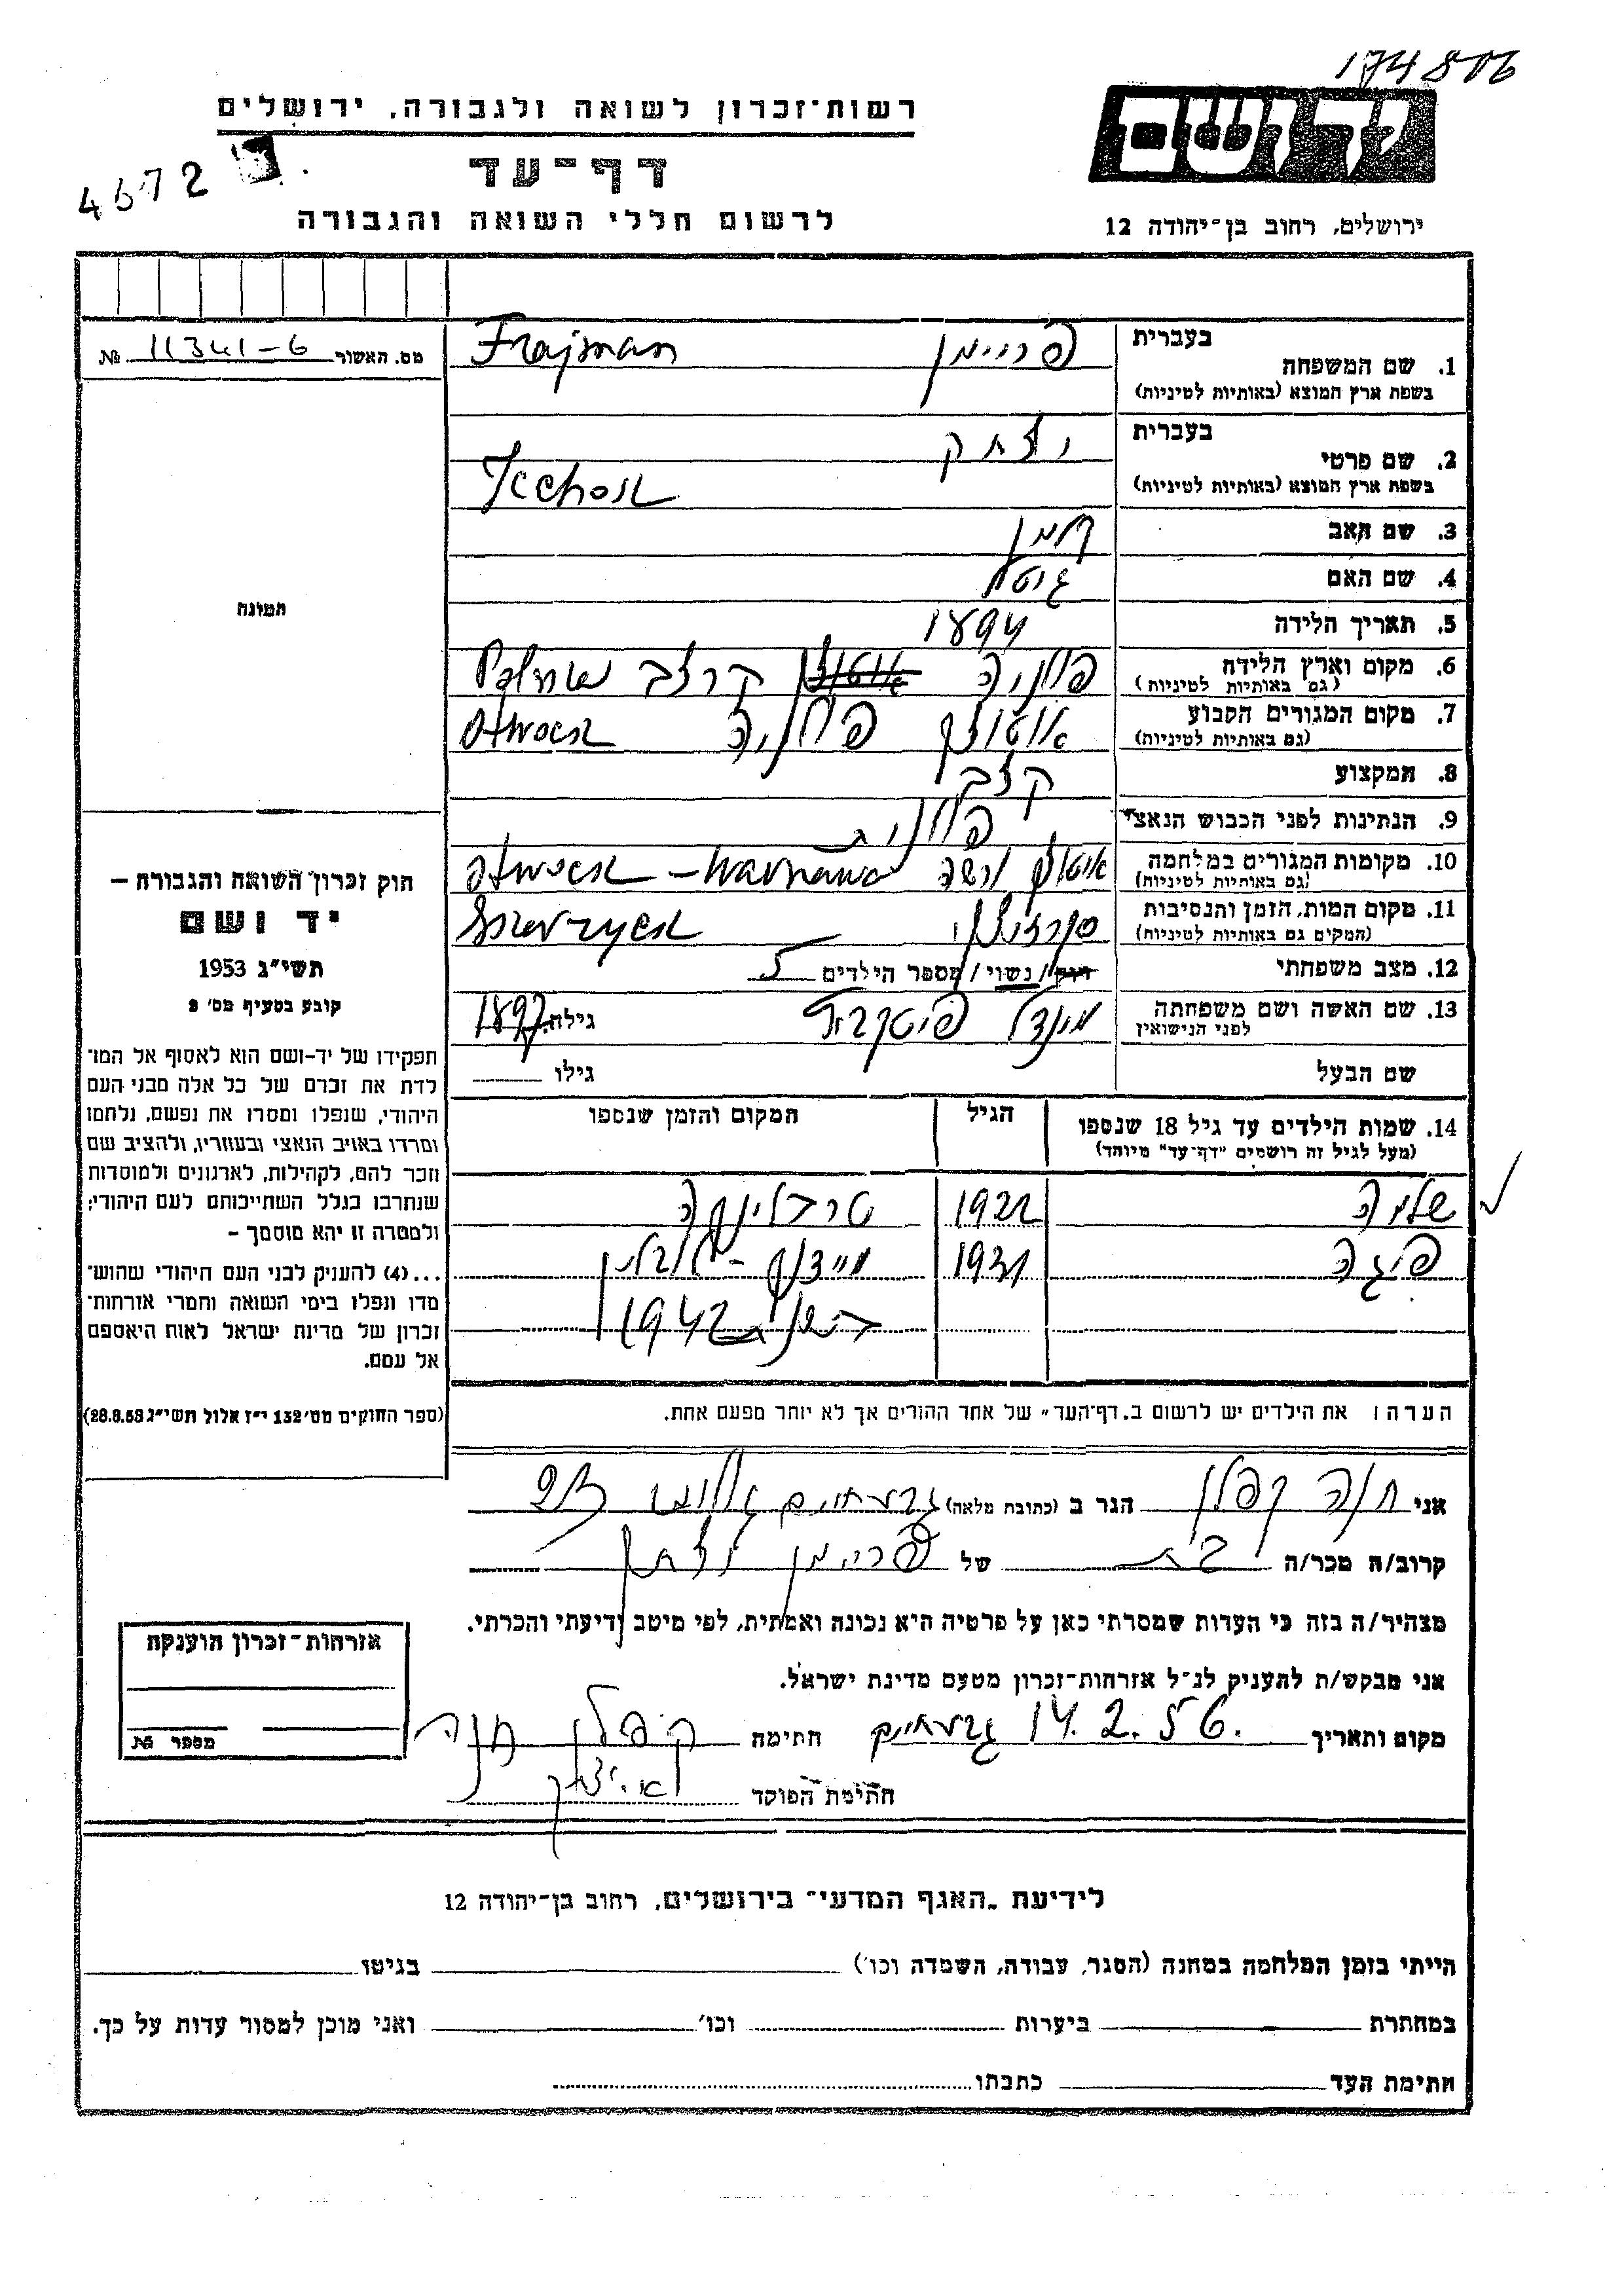 174806
יד ושם
רשות-זכרון לשואה ולגבורה, ירושלים
דף-עד
4572
לרשום חללי השואה והגבורה
ירושלים, רחוב בן-יהודה 12
מס. האשור 11341-6 №
בעברית
1. שם המשפחה פריימן Frajman
בשפת ארץ המוצא (באותיות לטיניות)
בעברית
2. שם פרטי יצחק
בשפת ארץ המוצא (באותיות לטיניות)
3. שם האב
4. שם האם גיטל
5. תאריך הלידה 1894
6. מקום וארץ הלידה פולניה
(גם באותיות לטיניות)
7. מקום המגורים הקבוע אוטווצק פולניה Otwock
(גם באותיות לטיניות)
8. המקצוע קצב
9. הנתינות לפני הכבוש הנאצי פולנית
10. מקומות המגורים במלחמה אוטווצק ורשה Otwock -
(גם באותיות לטיניות)
11. מקום המות, הזמן והנסיבות
(המקום גם באותיות לטיניות)
12. מצב משפחתי רווק / נשוי / מספר הילדים 5
13. שם האשה ושם משפחתה מינדל גילה 1897
לפני הנישואין
שם הבעל גילו
14. שמות הילדים עד גיל 18 שנספו הגיל המקום והזמן שנספו
(מעל לגיל זה רושמים "דף-עד" מיוחד)
שלמה 1922 טרבלינקה
פיגה 1931 מיידנק - לובלין
בשנת 1942
הערה: את הילדים יש לרשום ב"דף-העד" של אחד ההורים אך לא יותר מפעם אחת.
התמונה
חוק זכרון השואה והגבורה –
יד ושם
תשי"ג 1953
קובע בסעיף מס' 2
תפקידו של יד-ושם הוא לאסוף אל המו־
לדת את זכרם של כל אלה מבני העם
היהודי, שנפלו ומסרו את נפשם, נלחמו
ומרדו באויב הנאצי ובעוזריו, ולהציב שם
וזכר להם, לקהילות, לארגונים ולמוסדות
שנחרבו בגלל השתייכותם לעם היהודי;
ולמטרה זו יהא מוסמך –
...(4) להעניק לבני העם היהודי שהוש־
מדו ונפלו בימי השואה והמרי אזרחות־
זכרון של מדינת ישראל לאות היאספם
אל עמם.
(ספר החוקים מס' 132 י"ז אלול תשי"ג 28.8.53)
אני חנה קפלן הגר ב (כתובת מלאה) גבעתיים
קרוב/ה מכר/ה בת של פריימן יצחק
מצהיר/ה בזה כי העדות שמסרתי כאן על פרטיה היא נכונה ואמתית, לפי מיטב ידיעתי והכרתי.
אני מבקש/ת להעניק לנ"ל אזרחות-זכרון מטעם מדינת ישראל.
מקום ותאריך 14.2.56. גבעתיים חתימה קפלן חנה
חתימת הפוקד
אזרחות-זכרון הוענקה
מספר №
לידיעת "האגף המדעי" בירושלים, רחוב בן-יהודה 12
הייתי בזמן המלחמה במחנה (הסגר, עבודה, השמדה וכו') בגיטו
במחתרת ביערות וכו' ואני מוכן למסור עדות על כך.
חתימת העד כתבתו